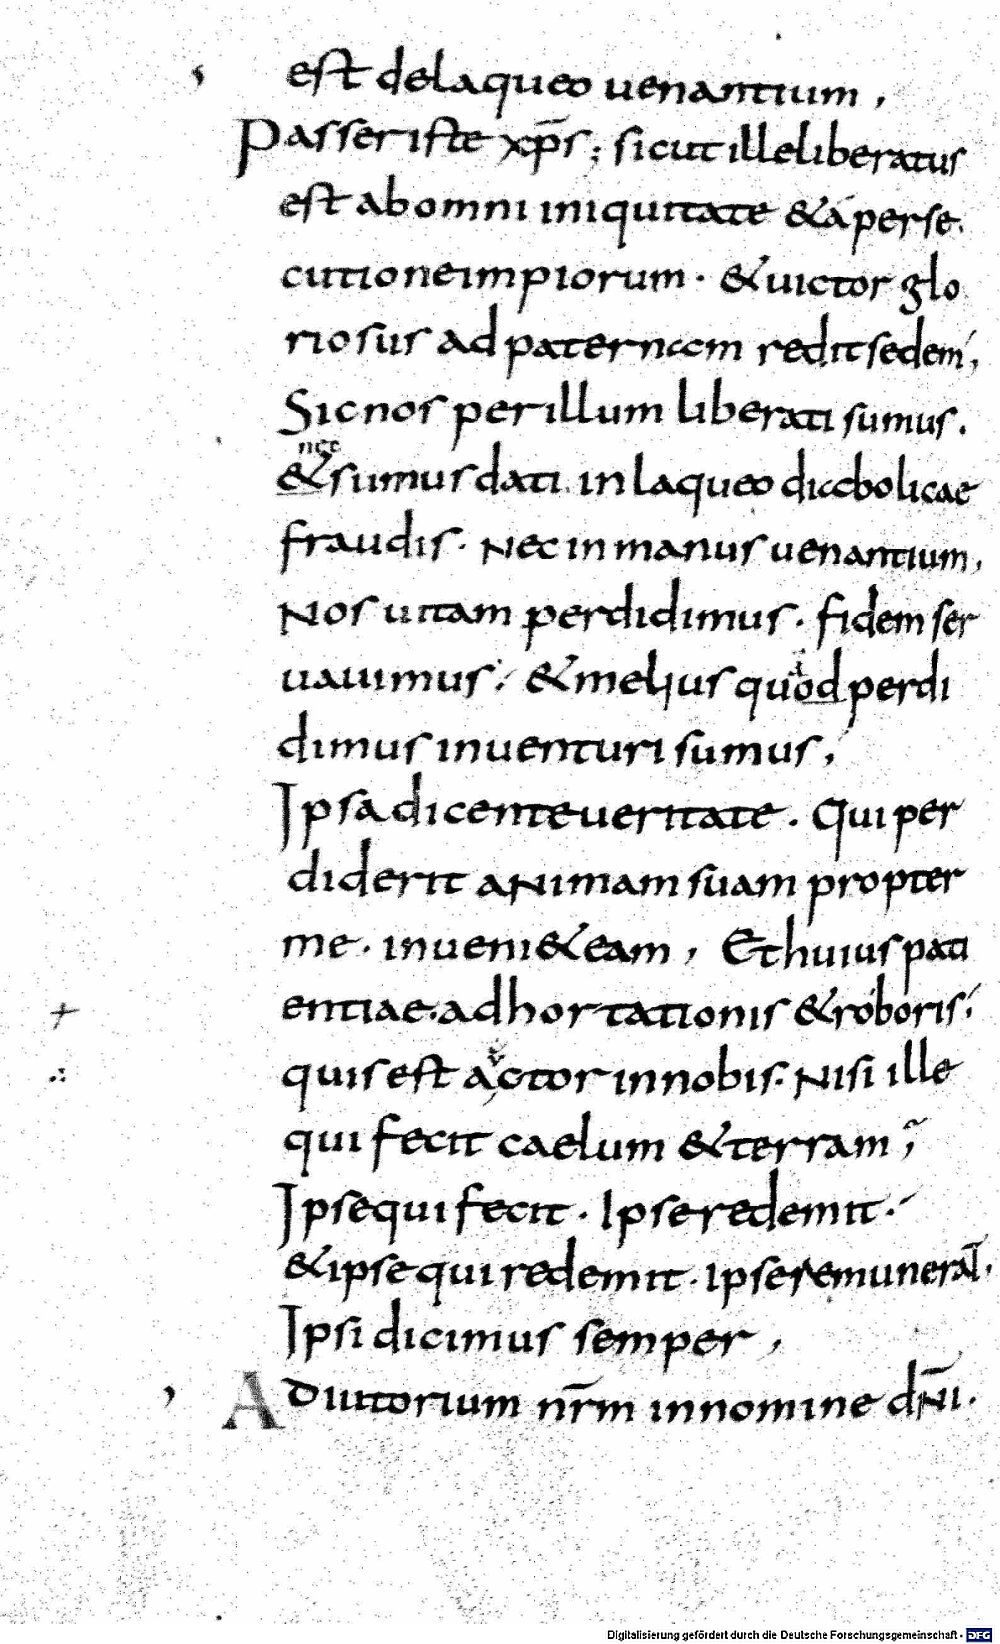 est delaqueo uenantium,
Passer iste xp̄s; sicut ille liberatus
est ab omni iniquitate & á perse
cutione impiorum · & uictor glo
riosus ad paternam redit sedem,
Sic nos per illum liberati sumus.
nec
& sumus dati in laqueo diabolicae
fraudis · Nec in manus uenantium,
Nos uitam perdidimus · fidem ser
uauimus; & melius quod perdi
dimus inuenturi sumus,
Ipsa dicente ueritate. Qui per
diderit animam suam propter
me · inueni& eam, Et huius pati
entiae adhortationis & roboris
quis est actor in nobis. Nisi ille
qui fecit caelum & terram;
Ipse qui fecit · Ipse redemit.
& ipse qui redemit · ipse remunerat̄.
Ipsi dicimus semper,
Adiutorium nr̄m in nomine dn̄i.
Digitalisierung gefördert durch die Deutsche Forschungsgemeinschaft - DFG